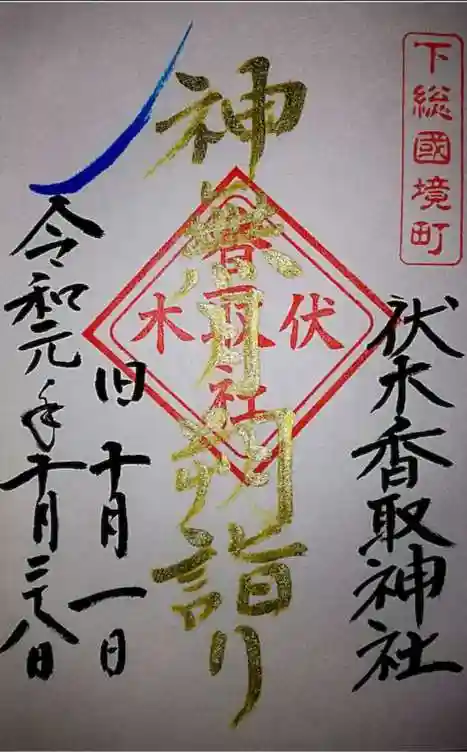 下総國境町
伏木香取神社
神無月朔詣り
伏木
香取社
旧 十月一日
令和元年十月二十八日